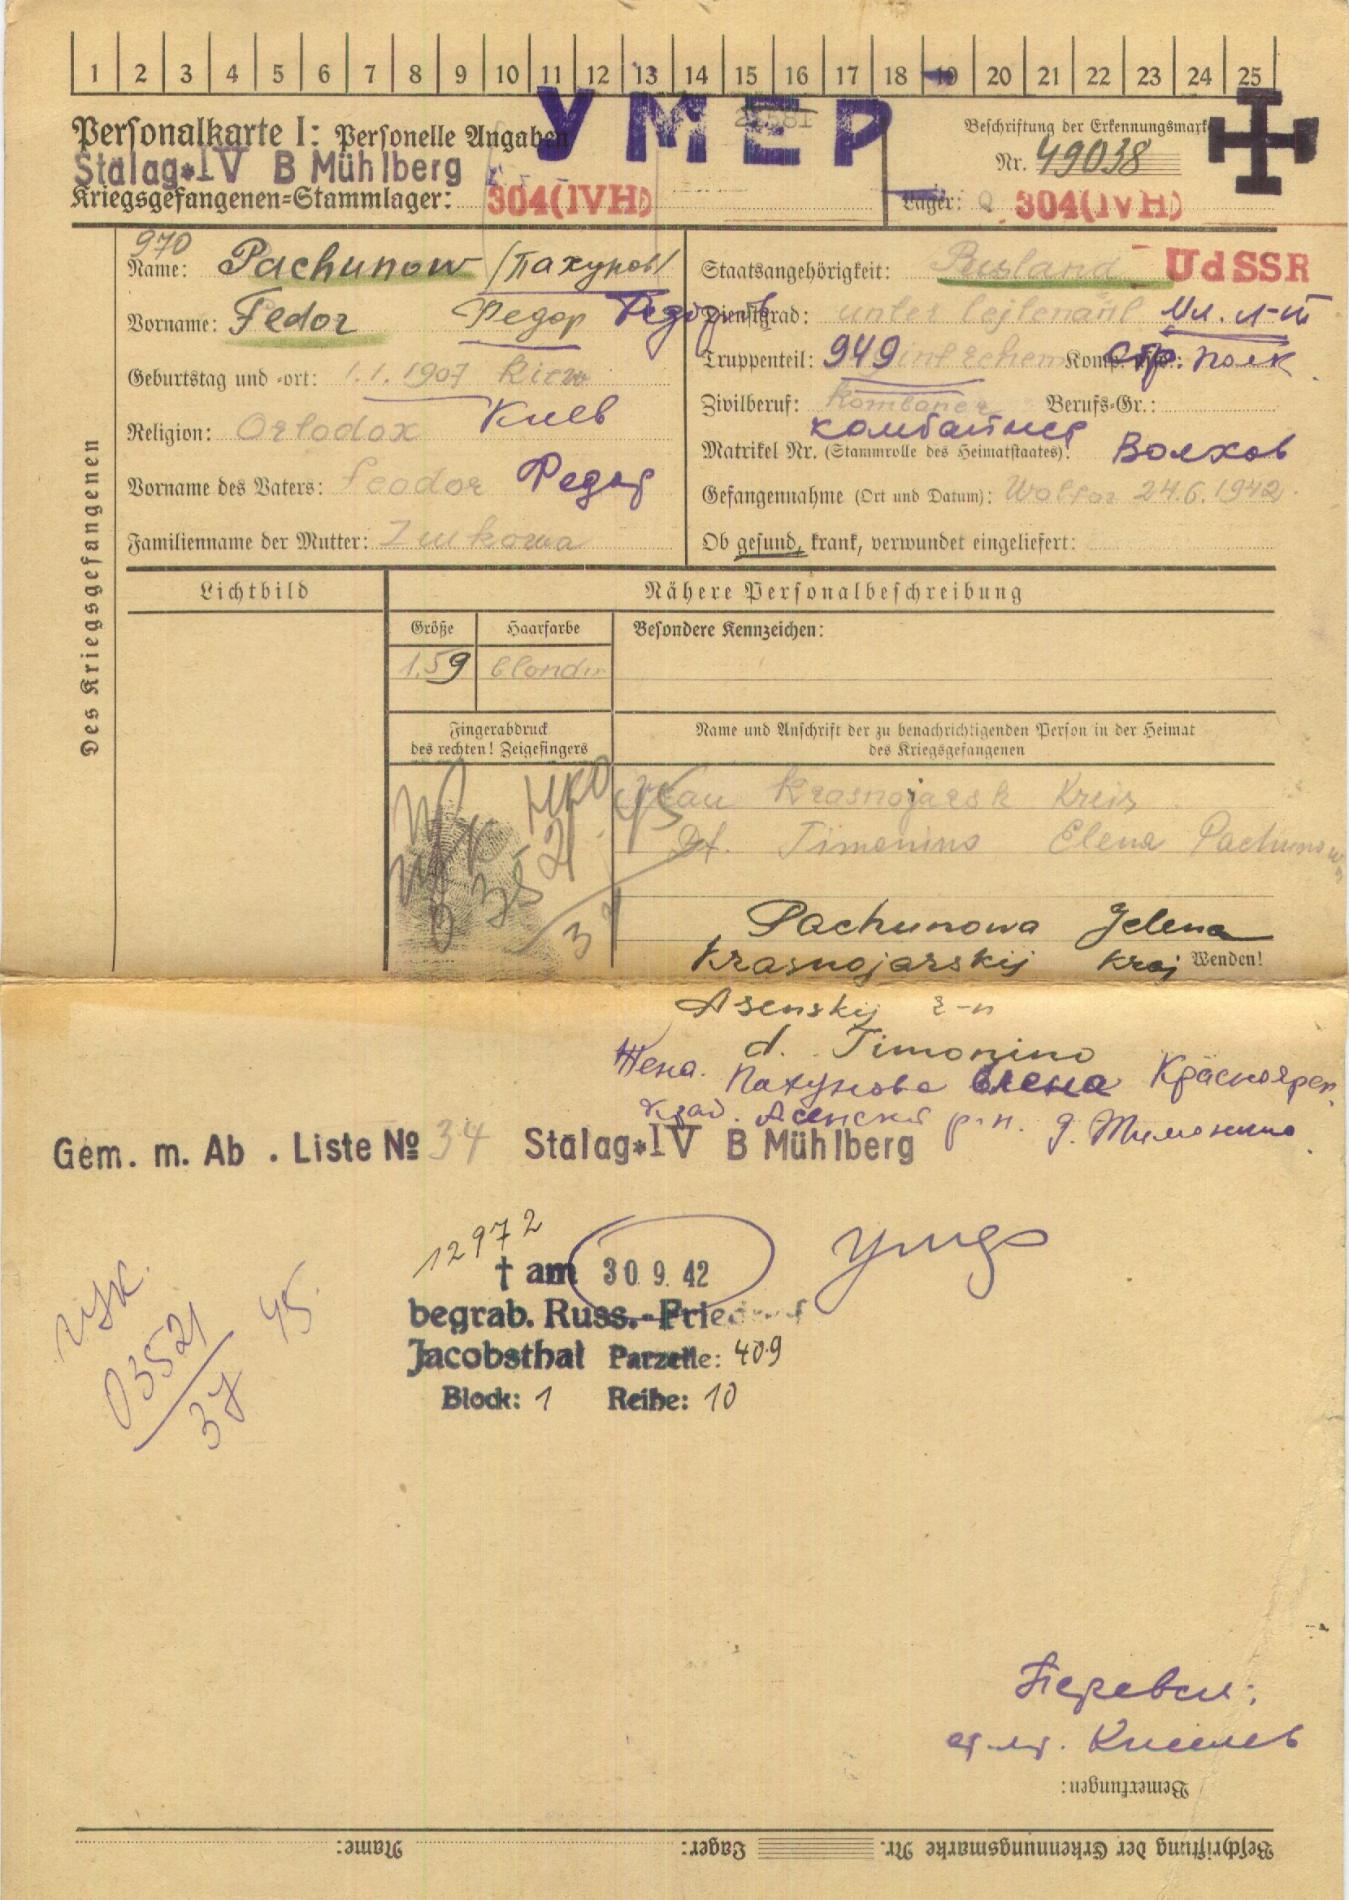 1 2 3 4 5 6 7 8 9 10 11 12 13 14 15 16 17 18 19 20 21 22 23 24 25
УМЕР
Personalkarte I: Personelle Angaben
Beschriftung der Erkennungsmarke
Stalag IV B Mühlberg
Nr. 49038
Kriegsgefangenen-Stammlager: 304(IVH)
Lager: 304(IVH)
Des Kriegsgefangenen
970
Name: Pachunow /Пахунов/
Vorname: Fedor Федор
Geburtstag und -ort: 1.1.1907 Kiew
Киев
Religion: Ortodox
Vorname des Vaters: Feodor Федор
Familienname der Mutter:
Staatsangehörigkeit: Rusland UdSSR
Dienstgrad: unter lejtenant Мл. л-т
Truppenteil: 949 Komp. Стр. полк
Zivilberuf: Berufs-Gr.:
Matrikel Nr. (Stammrolle des Heimatstaates): Волхов
Gefangennahme (Ort und Datum): 24.6.1942
Ob gesund, krank, verwundet eingeliefert:
Lichtbild
Nähere Personalbeschreibung
Größe Haarfarbe Besondere Kennzeichen:
1.59 blond
Fingerabdruck
des rechten! Zeigefingers
Name und Anschrift der zu benachrichtigenden Person in der Heimat
des Kriegsgefangenen
Frau Krasnojarsk Kreis
Df. Timonino Elena Pachunowa
Pachunowa Jelena
Krasnojarskij Kraj Wenden!
Asenskij r-n
d. Timonino
Жена. Пахунова Елена Красноярск.
край. Асенский р-н. д. Тимонино.
Gem. m. Ab . Liste № 34 Stalag IV B Mühlberg
12972
† am 30. 9. 42
begrab. Russ.-Friedhof
Jacobsthal Parzelle: 409
Block: 1 Reihe: 10
03521
37
45
Перевел:
ст. лт. Киселев
Bemerkungen:
Beschriftung der Erkennungsmarke Nr. Lager: Name: